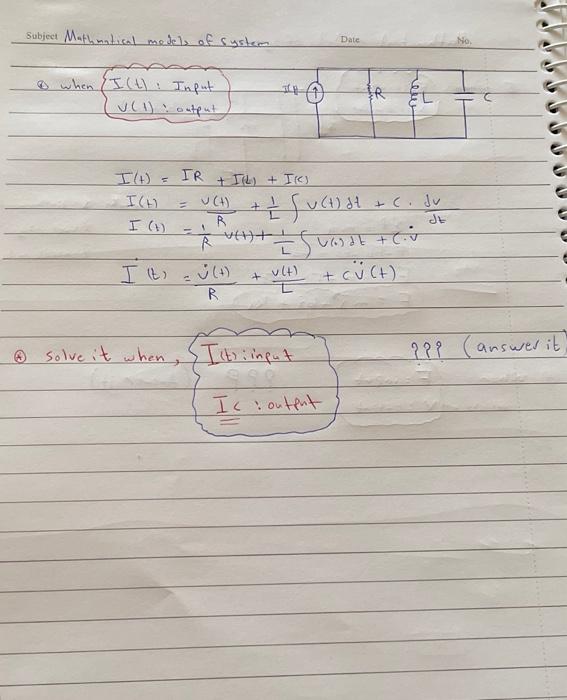 Subject Mathmatical models of system Date No.
⊛ when I(t) : Input
V(t) : output
R L C
I(t) = IR + I(L) + I(C)
I(t) = V(t)/R + 1/L ∫ V(t) dt + C . dv/dt
I(t) = 1/R V(t) + 1/L ∫ V(t) dt + C . v̇
İ(t) = v̇(t)/R + v(t)/L + c v̈(t)
⊛ solve it when, I(t) : input ??? (answer it)
Ic : output